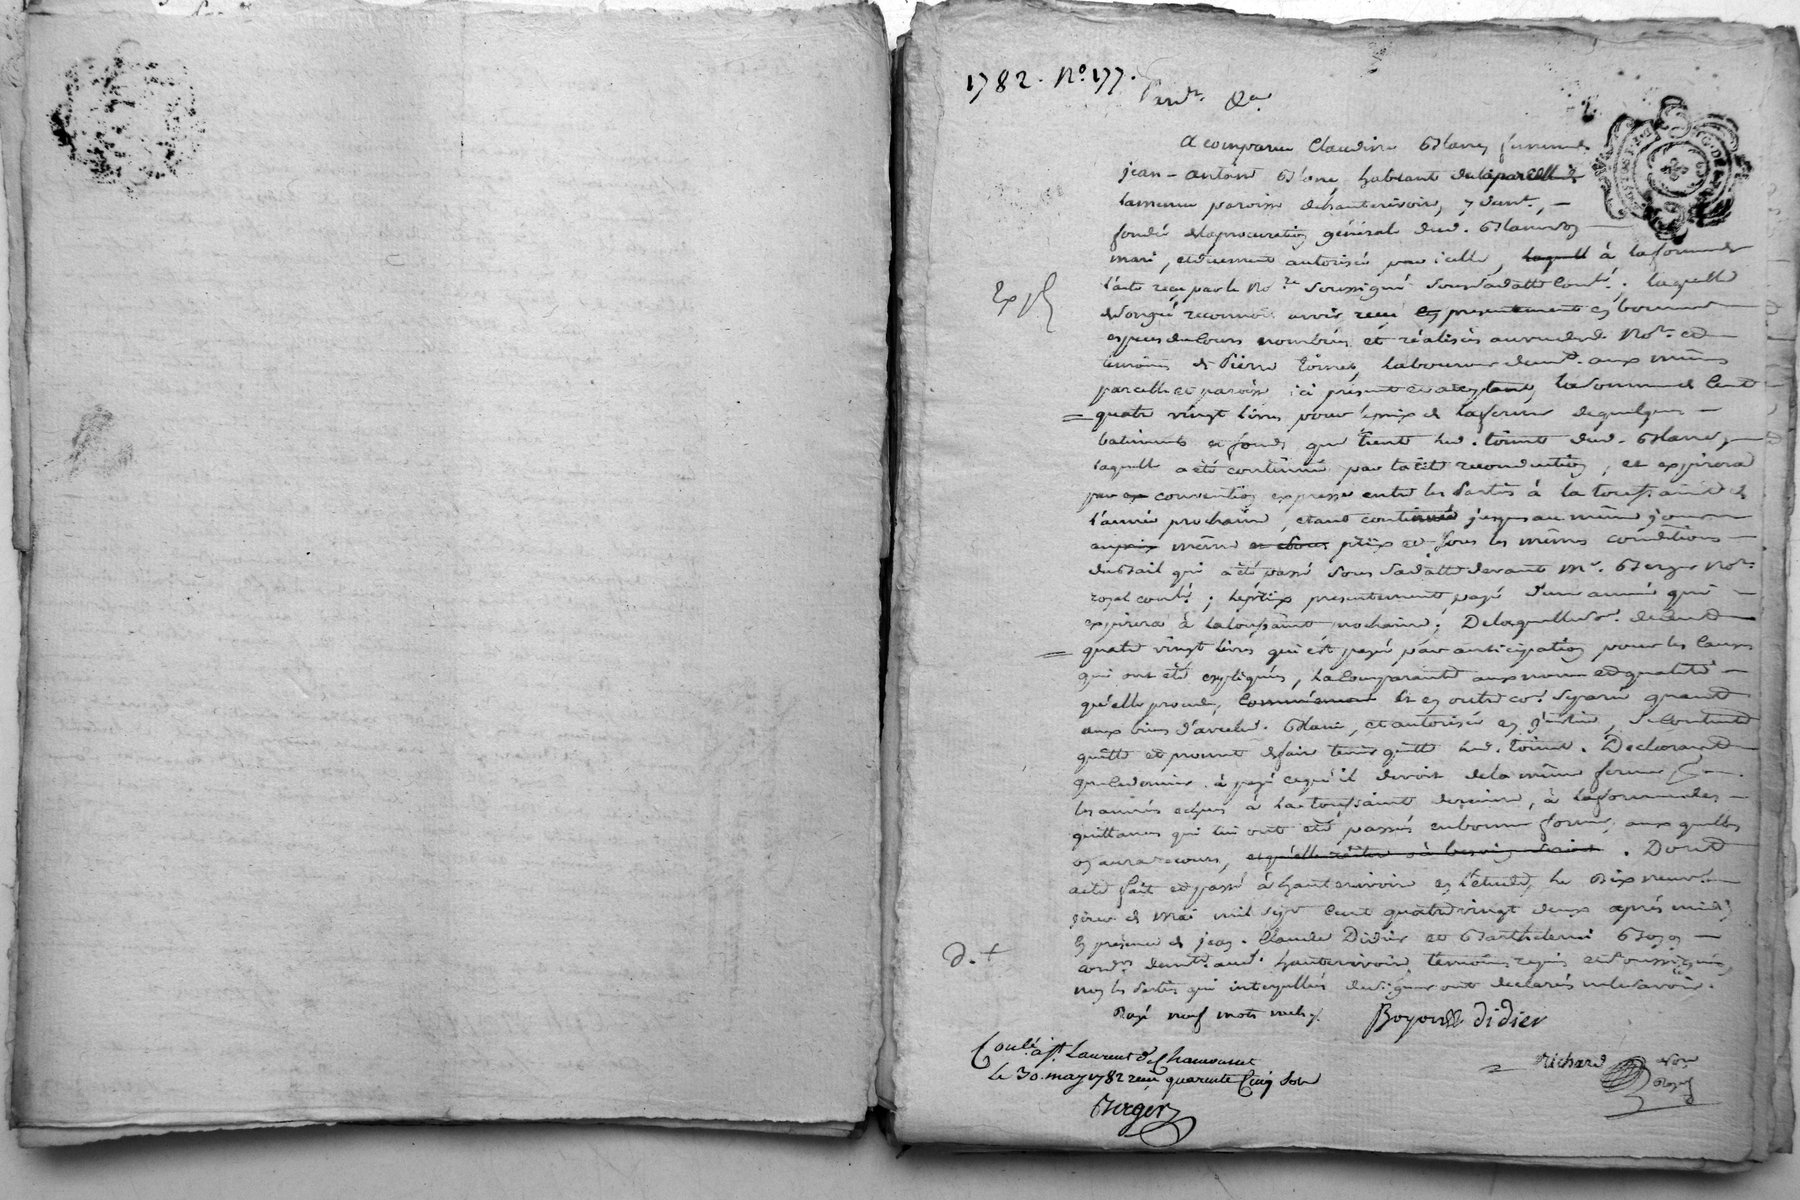 1782. N.o 177.
Pardt. &a
A comparu Claudine Blanc femme de
jean-antoine Blanc habitant de la parcelle de
la même paroisse de hauterivoire, y demt., -
fondée de la procuration générale dud. Blanc son
mari, et duement autorisée par icelle, laquelle à la forme de
l'acte reçu par le No.re soussigné sous sa datte Conté.; laquelle
de son gré reconnoit avoir reçu presentement en bonnes
especes du Cours nombrées et réalisées au vu dud. No.re et
témoins de Pierre Toinet, laboureur demt. aux mêmes
parcelle et paroisse ici présent et acceptant, la somme de Cent
quatre vingt livres pour le prix de la ferme de quelques -
batiments et fonds que tient led. toinet dud. Blanc,
laquelle a été continuée par tacite reconduction, et expirera
par convention expresse entre les Parties à la toussaint de
l'année prochaine, étant continuée jusques au même jour
au prix même prix et sous les mêmes conditions -
du Bail qui a été passé sous sa datte devant Me. Berger No.re
royal conté.; le prix presentement payé d'une année qui -
expirera à la toussaint prochaine; De laquelle so. de Cent
quatre vingt livres qui est payée par anticipation pour les Causes
qui ont été expliquées, la Comparante aux noms et qualités -
qu'elle procede, et en outre co. separée quant
aux biens d'avec led. Blanc, et autorisée en justice, se Contente
quitte et promet de faire tenir quitte led. toinet. Declarant
que ce dernier a payé ce qu'il devoit de la même ferme
les années echues à la toussaint derniere, à la forme des -
quittances qui lui ont été passées en bonne forme, auxquelles
on aura recours, . Dont
acte fait et passé à hauterivoire en l'étude, le Dix neuvieme
jour de mai mil sept Cent quatre vingt deux après midi,
En présence de jean-Claude Didier et Barthelemi Boyon -
cord.rs demt. aud. hauterivoire, témoins requis et soussignés,
non les Parties qui interpellées de signer ont déclarés ne le savoir.
Rayé neuf mots nuls.
Boyon Didier
Conlé. à St. Laurent de Chamousset
le 30. may 1782 reçu quarente Cinq Sols
Berger
Richard No.re Royal